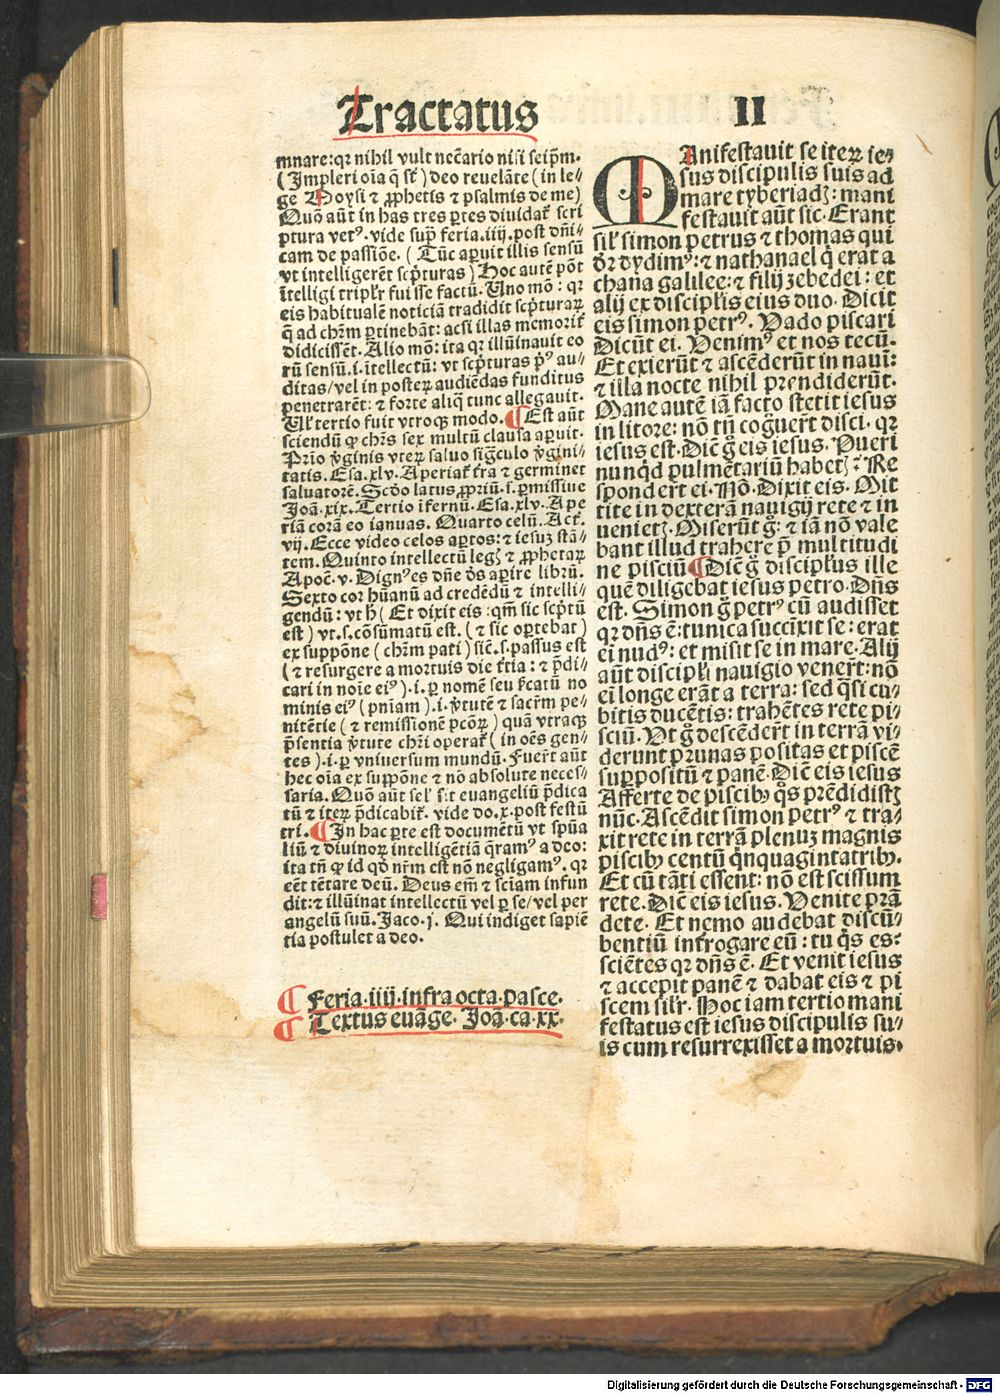 Tractatus II
mnare: qꝛ nihil vult necc̄ario niſi ſeip̄m.
(Impleri oīa q̄ ſt̄) deo reuelāte (in le⸗
ge Moyſi ⁊ ꝓphetis ⁊ pſalmis de me)
Quō aūt in has tres ꝑtes diuidat᷑ ſcri
ptura vetꝰ. vide ſup̄ feria.iiij. poſt dn̄i⸗
cam de paſſiōe. (Tūc aꝑuit illis ſenſū
vt intelligerēt ſcp̄turas) Hoc autē pōt
ītelligi triplr̄ fuiſſe factū. Uno mō: qꝛ
eis habitualē noticiā tradidit ſcp̄turaꝝ
q̄ ad chm̄ ꝑtinebāt: acſi illas memorit᷑
didiciſſēt. Alio mō: ita qꝛ illūinauit eo
rū ſenſū.i.ītellectū: vt ſcp̄turas pꝰ au⸗
ditas/vel in poſteꝝ audiēdas funditus
penetrarēt: ⁊ forte aliq̄ tunc allegauit.
Ul̄ tertio fuit vtroqꝫ modo. ¶ Eſt aūt
ſciendū ꝙ chr̄s ſex multū clauſa aꝑuit.
Prīo v̄ginis vteꝝ ſaluo ſiḡculo v̄gini⸗
tatis. Eſa.xlv. Aperiat᷑ t̄ra ⁊ germinet
ſaluatorē. Scd̄o latus ꝓpriū.ſ.ꝑmiſſiue
Joā.xix. Tertio īfernū. Eſa.xlv. Ape
riā corā eo ianuas. Quarto celū. Act᷑.
vij. Ecce video celos aꝑtos: ⁊ ieſuꝫ ſtā⸗
tem. Quinto intellectū legꝭ ⁊ ꝓphetaꝝ
Apoc̄.v. Dignꝰ es dn̄e d̄s aꝑire librū.
Sexto cor hūanū ad credēdū ⁊ intelli⸗
gendū: vt h̄ (Et dixit eis: qm̄ ſic ſcp̄tū
eſt) vt.ſ.cōſūmatū eſt. (⁊ ſic oꝑtebat)
ex ſuppōne (chm̄ pati) ſic̄.ſ.paſſus eſt
(⁊ reſurgere a mortuis die t̄tia: ⁊ p̄di⸗
cari in noīe eiꝰ).i.ꝑ nomē ſeu ꝟcatū no
minis eiꝰ (pn̄iam).i.v̄tutē ⁊ ſacrm̄ pe⸗
nitētie (⁊ remiſſionē pcōꝝ) quā vtraqꝫ
p̄ſentia v̄tute chr̄i operat᷑ (in oēs gen⸗
tes).i.ꝑ vniuerſum mundū. Fuer̄t aūt
hec oīa ex ſuppōne ⁊ nō abſolute neceſ⸗
ſaria. Quō aūt ſel̓ ſit euangeliū p̄dica
tū ⁊ iteꝝ p̄dicabit᷑. vide do.x.poſt feſtū
tri. ¶ In hac ꝑte eſt documētū vt ſpūa
liū ⁊ diuinoꝝ intelligētiā q̄ramꝰ a deo:
ita tn̄ ꝙ id qd̄ nr̄m eſt nō negligamꝰ. qꝛ
eēt tētare deū. Deus em̄ ⁊ ſciam infun
dit: ⁊ illūinat intellectū vel ꝑ ſe/vel per
angelū ſuū. Jaco.j. Qui indiget ſapiē
tia poſtulet a deo.
¶ Feria.iiij.infra octa.paſce.
¶ Textus euāge. Joā.ca.xx.
MAnifeſtauit ſe iteꝝ ie⸗
ſus diſcipulis ſuis ad
mare tyberiadꝭ: mani
feſtauit aūt ſic. Erant
ſil̓ ſimon petrus ⁊ thomas qui
d̄r dydimꝰ: ⁊ nathanael q̇ erat a
chana galilee: ⁊ filij zebedei: et
alij ex diſcipl̓is eius duo. Dicit
eis ſimon petrꝰ. Vado piſcari
Dicūt ei. Venimꝰ et nos tecū.
Et exierūt ⁊ aſcēderūt in nauī:
⁊ illa nocte nihil prendiderūt.
Mane autē iā facto ſtetit ieſus
in litore: nō tn̄ cognuer̄t diſci. qꝛ
ieſus eſt. Dic̄ g̊ eis ieſus. Pueri
nunq̇d pulmētariū habetꝭ? Re
ſponder̄t ei. Nō. Dixit eis. Mit
tite in dexterā nauigij rete ⁊ in
uenietꝭ. Miſerūt g̊: ⁊ iā nō vale
bant illud trahere p̄ multitudi
ne piſciū ¶ Dic̄ g̊ diſcipl̓us ille
quē diligebat ieſus petro. Dn̄s
eſt. Simon g̊ petrꝰ cū audiſſet
qꝛ dn̄s ē: tunica ſuccīxit ſe: erat
ei nudꝰ: et miſit ſe in mare. Alij
aūt diſcipl̓i nauigio vener̄t: nō
ei longe erāt a terra: ſed q̄ſi cu⸗
bitis ducētis: trahētes rete pi⸗
ſciū. Vt g̊ deſcēder̄t in terrā vi⸗
derunt prunas poſitas et piſcē
ſuꝑpoſitū ⁊ panē. Dic̄ eis ieſus
Afferte de piſcibꝰ q̊s prēdidiſtꝭ
nūc. Aſcēdit ſimon petrꝰ ⁊ tra⸗
xit rete in terrā plenuꝫ magnis
piſcibꝰ centū q̇nquagintatribꝰ.
Et cū tāti eſſent: nō eſt ſciſſum
rete. Dic̄ eis ieſus. Venite prā
dete. Et nemo audebat diſcū⸗
bentiū infrogare eū: tu q̇s es?
ſciētes qꝛ dn̄s ē. Et venit ieſus
⁊ accepit panē ⁊ dabat eis ⁊ pi
ſcem ſil̓r. Hoc iam tertio mani
feſtatus eſt ieſus diſcipulis ſu⸗
is cum reſurrexiſſet a mortuis.
Digitalisierung gefördert durch die Deutsche Forschungsgemeinschaft - DFG